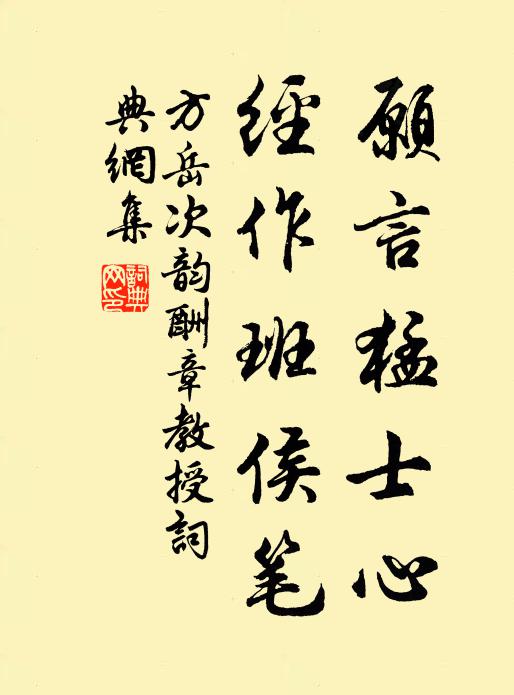 願言猛士心
經作班侯笔
方岳次韵酬章教授詞
典網集
詞典
网印